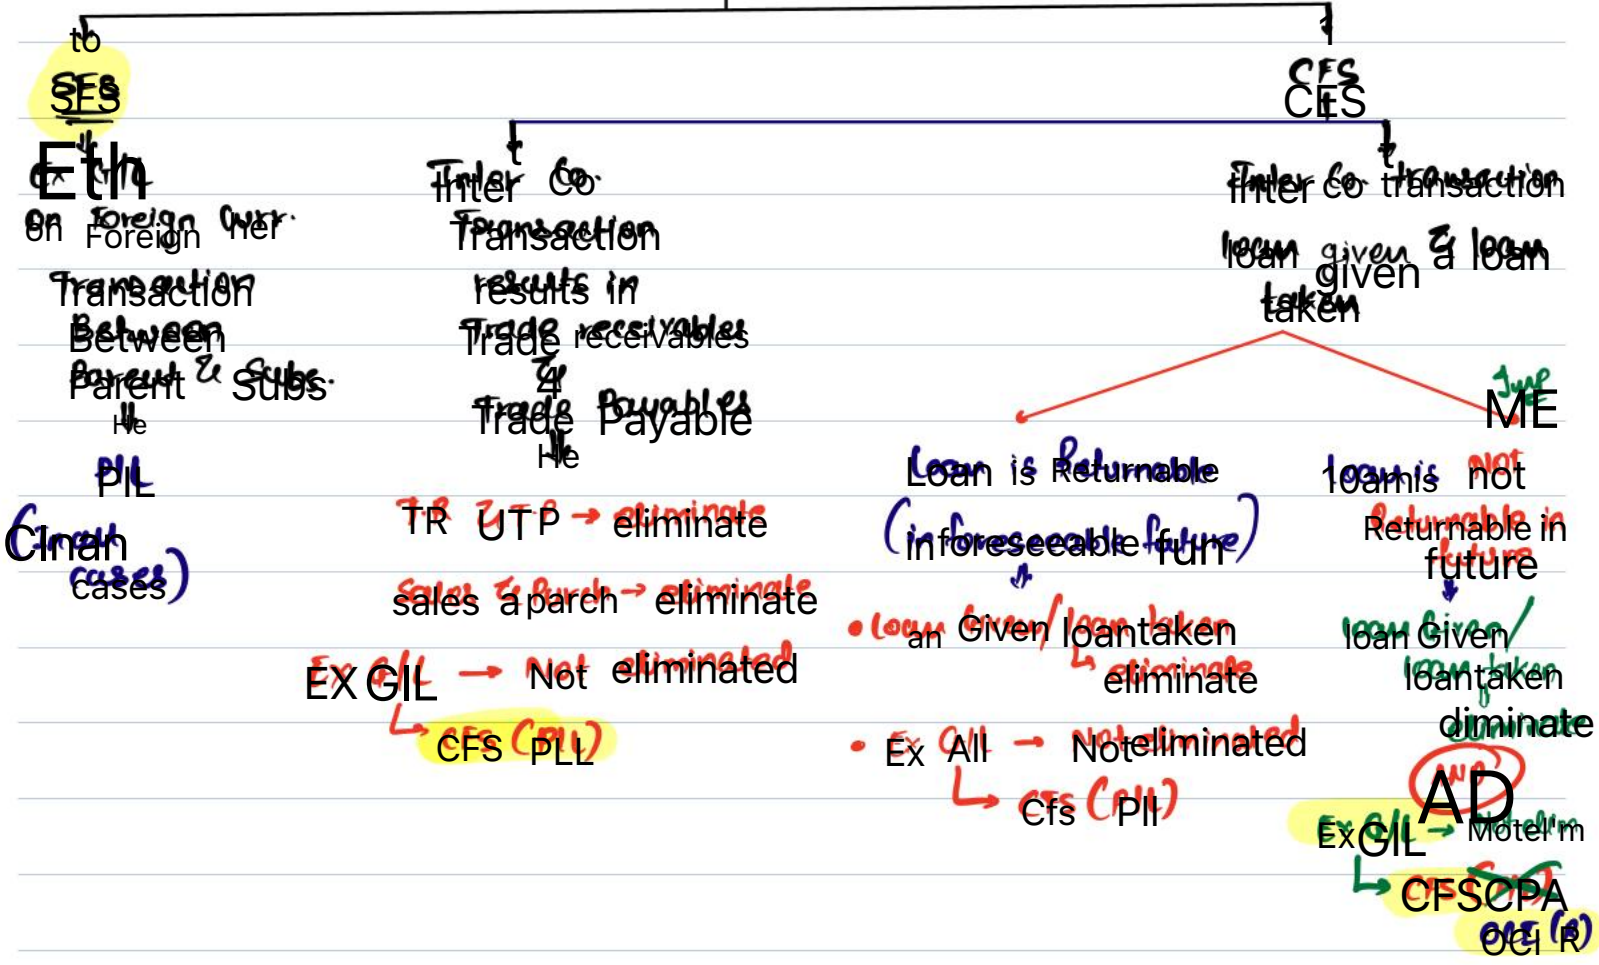 SFS
Ex G/L
on Foreign Curr.
Transaction
Between
Parent & Subs.
P/L
(in both
cases)
CFS
Inter Co.
Transaction
results in
Trade receivables
&
Trade Payables
T.R & T.P → eliminate
Sales & Purch → eliminate
Ex G/L → Not eliminated
CFS (P/L)
Inter Co. transaction
loan given & loan
taken
Loan is Returnable
(in foreseeable future)
• loan Given/loan taken
eliminate
• Ex G/L → Not eliminated
CFS (P/L)
Imp
loan is NOT
Returnable in
future
loan Given/
loan taken
eliminate
AND
Ex G/L → Not elim
CFS (P/L)
OCI (R)